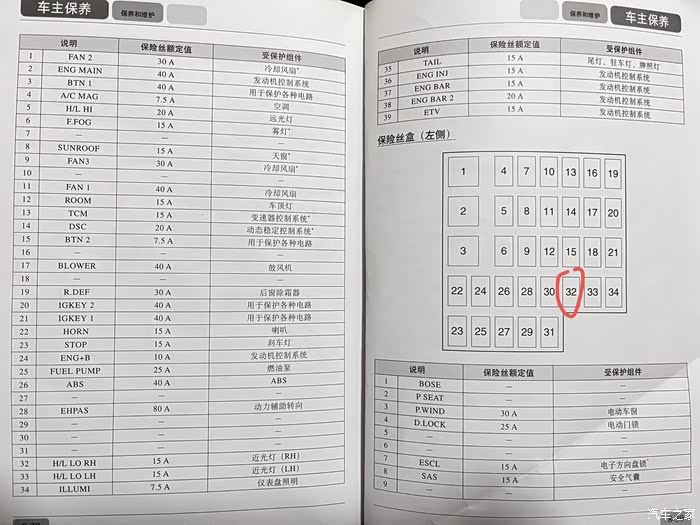 车主保养
保养和维护
说明 保险丝额定值 受保护组件
1 FAN 2 30 A 冷却风扇*
2 ENG MAIN 40 A 发动机控制系统
3 BTN 1 40 A 用于保护各种电路
4 A/C MAG 7.5 A 空调
5 H/L HI 20 A 远光灯
6 F.FOG 15 A 雾灯*
7 — — —
8 SUNROOF 15 A 天窗*
9 FAN3 30 A 冷却风扇*
10 — — —
11 FAN 1 40 A 冷却风扇
12 ROOM 15 A 车顶灯
13 TCM 15 A 变速器控制系统*
14 DSC 20 A 动态稳定控制系统*
15 BTN 2 7.5 A 用于保护各种电路
16 — — —
17 BLOWER 40 A 鼓风机
18 — — —
19 R.DEF 30 A 后窗除霜器
20 IGKEY 2 40 A 用于保护各种电路
21 IGKEY 1 40 A 用于保护各种电路
22 HORN 15 A 喇叭
23 STOP 15 A 刹车灯
24 ENG+B 10 A 发动机控制系统
25 FUEL PUMP 25 A 燃油泵
26 ABS 40 A ABS
27 — — —
28 EHPAS 80 A 动力辅助转向
29 — — —
30 — — —
31 — — —
32 H/L LO RH 15 A 近光灯（RH）
33 H/L LO LH 15 A 近光灯（LH）
34 ILLUMI 7.5 A 仪表盘照明
保养和维护
车主保养
说明 保险丝额定值 受保护组件
35 TAIL 15 A 尾灯、驻车灯、牌照灯
36 ENG INJ 15 A 发动机控制系统
37 ENG BAR 15 A 发动机控制系统
38 ENG BAR 2 20 A 发动机控制系统
39 ETV 15 A 发动机控制系统
保险丝盒（左侧）
1 4 7 10 13 16 19
2 5 8 11 14 17 20
3 6 9 12 15 18 21
22 24 26 28 30 32 33 34
23 25 27 29 31
说明 保险丝额定值 受保护组件
1 BOSE — —
2 P SEAT — —
3 P.WIND 30 A 电动车窗
4 D.LOCK 25 A 电动门锁
5 — — —
6 — — —
7 ESCL 15 A 电子方向盘锁*
8 SAS 15 A 安全气囊
9 — — —
汽车之家